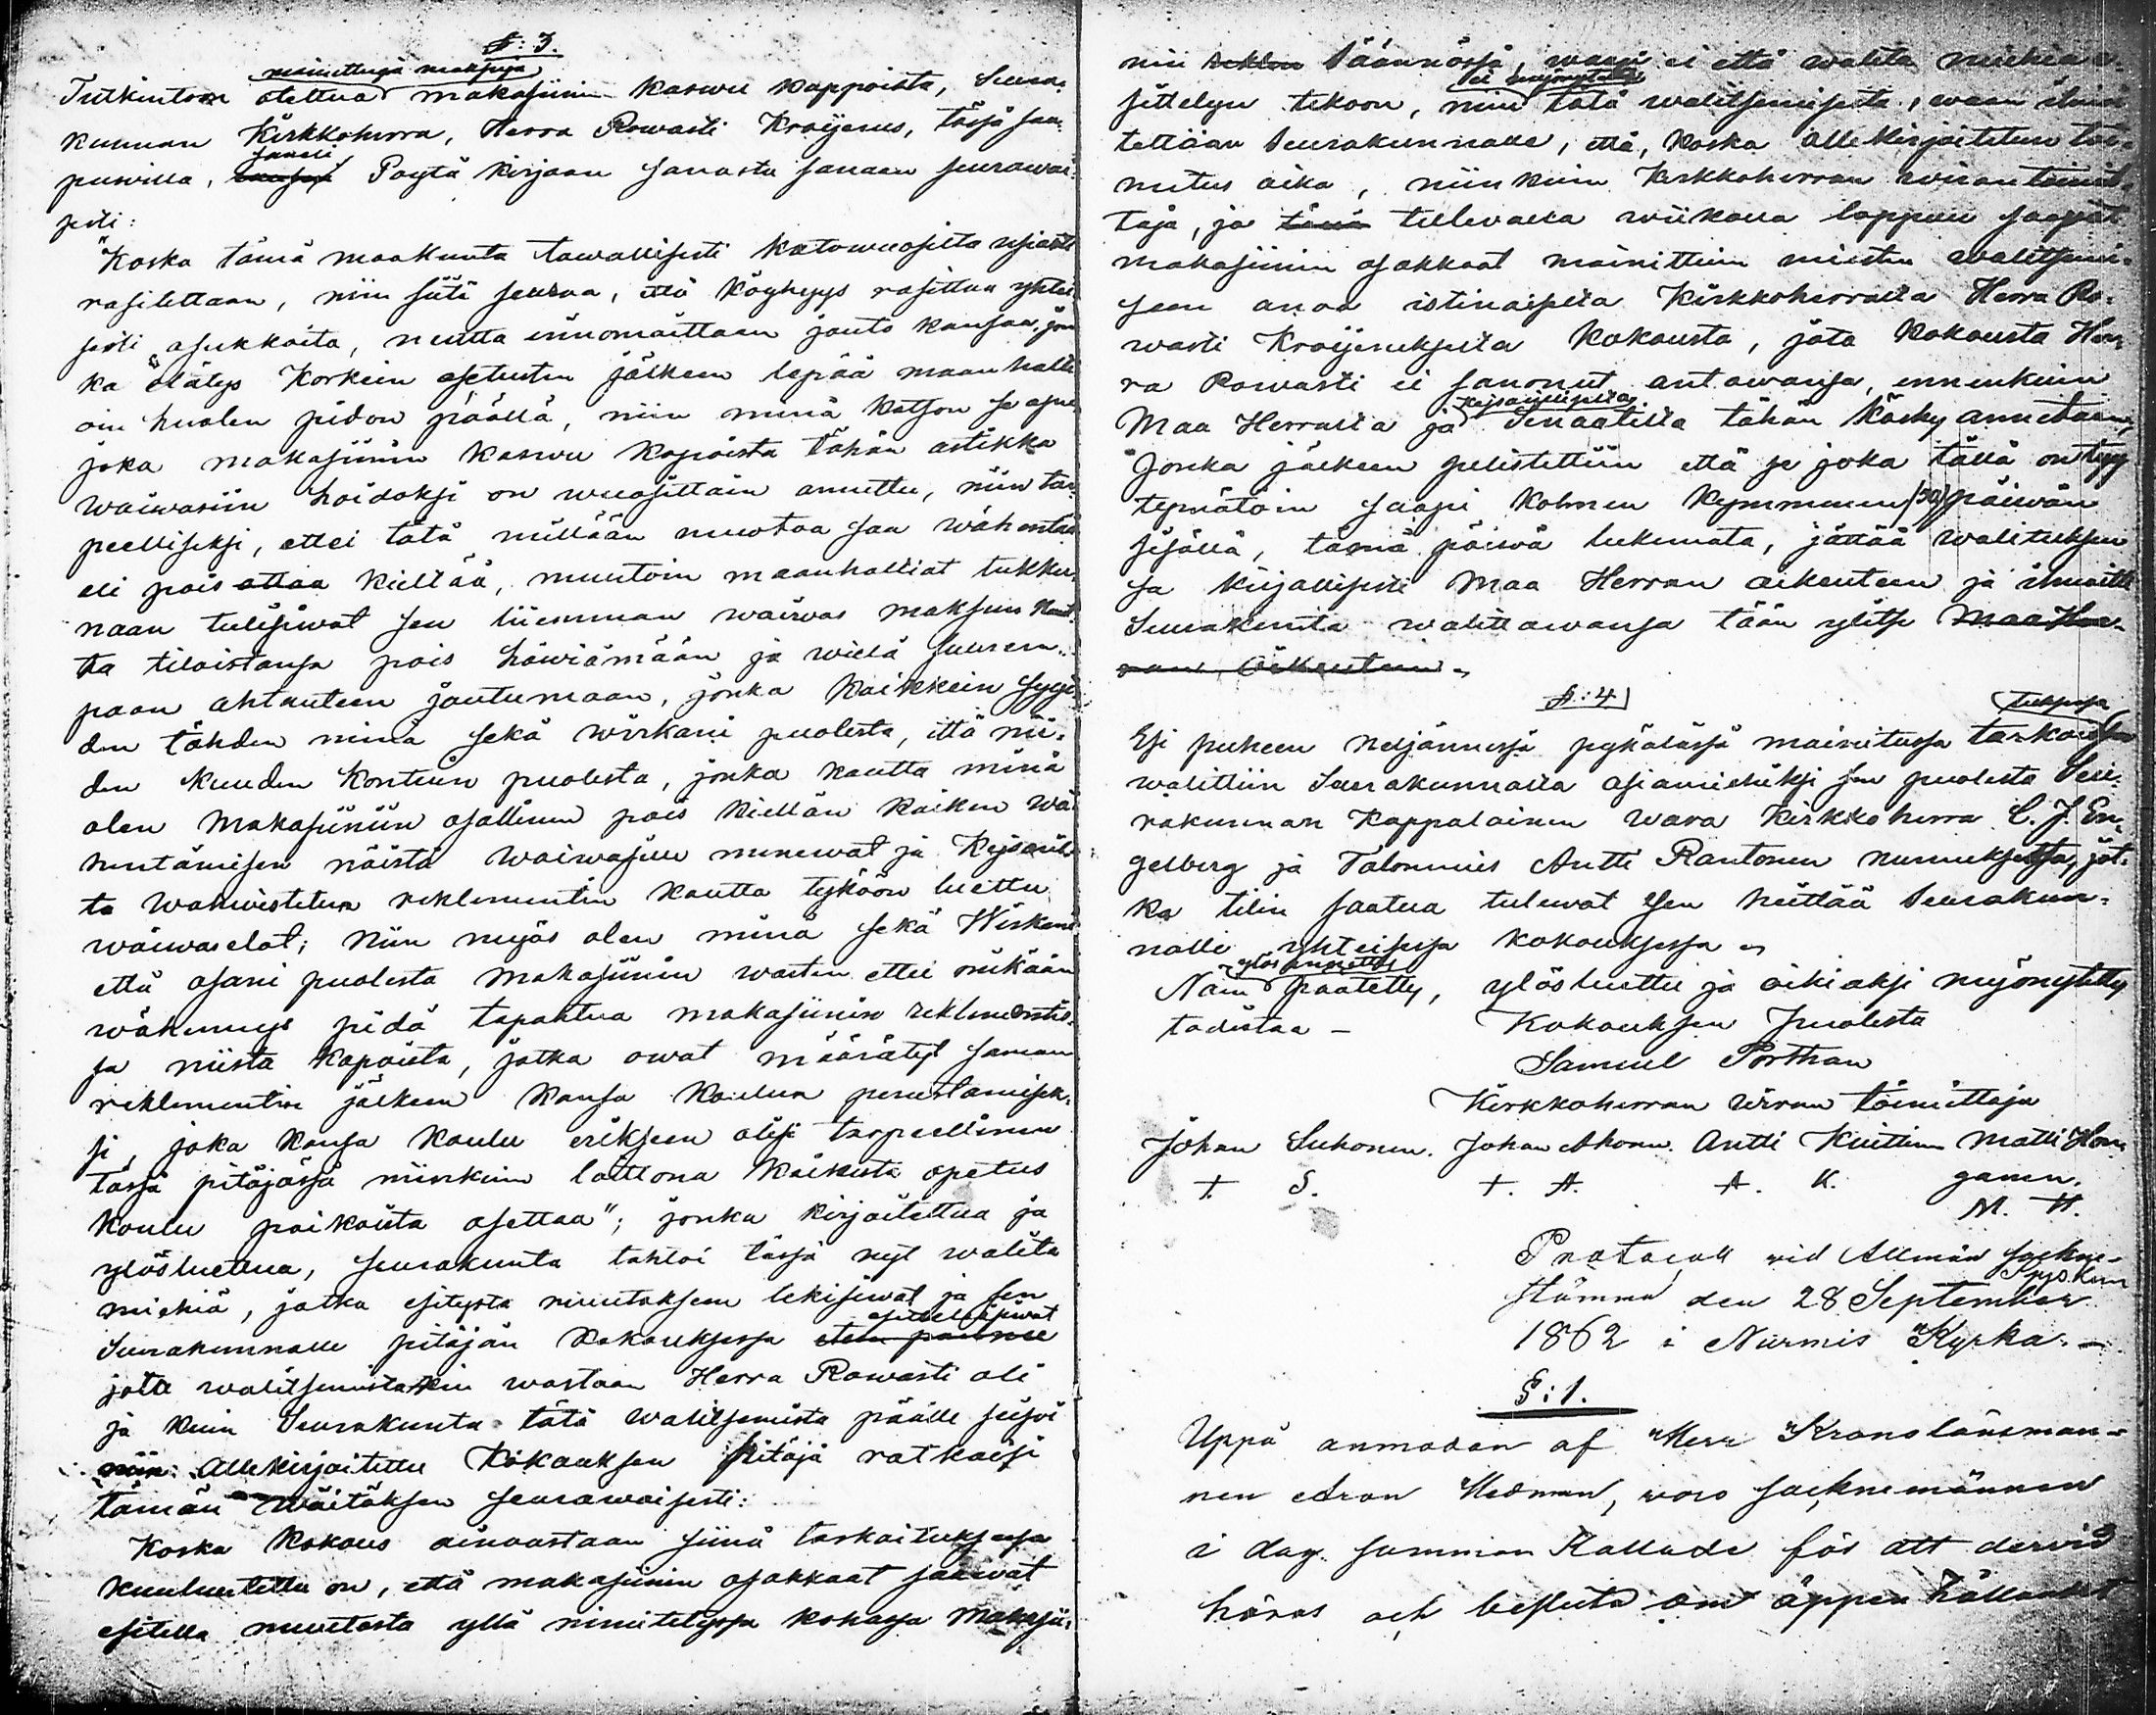 §: 3.
mainittuja maksuja
Tutkintoon otettua makasiinin kaswu kappoista, Seura-
kunnan Kirkkoherra, Herra Rowasti Kroijerus, tässä saa-
puwilla, saneli Pöytä kirjaan sanasta sanaan seurawai-
sesti:
"Koska tämä maakunta tawallisesti katowuosilta usiasti
rasitettaan, niin siitä seuraa, että köyhyys rasittaa yhtei-
sesti asukkaita, mutta erinomaittaan jouto kansaa, jon-
ka elätys Korkein asetusten jälkeen lepää maanhalti-
oin huolen pidon päällä, niin minä katson se apu
joka makasiinin kaswu kapoista tähän astikka
waiwasiin hoidoksi on wuosittain annettu, niin tar-
peelliseksi, ettei tätä millään muotoa saa wähentää
eli pois ottaa kieltää, muutoin maanhaltiat tukku-
naan tulisiwat sen liiemman waiwas maksun kaut-
ta tiloistansa pois häwiämään ja wielä suurem-
paan ahtauteen joutumaan, jonka kaikkein syyi-
den tähden minä sekä wirkani puolesta, että nii-
den kuuden Kontuin puolesta, jonka kautta minä
olen Makasiiniin osallinen pois kiellän kaiken wä-
hentämisen näistä waiwasille menewät ja Kejsaril-
ta wahwistetun reklementin kautta tyköön luettu
wäiwaselot; Niin myös olen minä sekä Wirkani
että osani puolesta makasiinin wasten ettei mikään
wähennys pidä tapahtua makasiinin reklementis-
sa niistä kapoista, jotka owat määrätyt saman
reklementin jälkeen kansa koulun perustamisek-
si, joka kansa koulu erikseen olisi tarpeellinen
tässä pitäjässä niinkuin lattona Kaikista opetus
koulu paikoista asettaa"; jonka kirjoitettua ja
ylösluettua, seurakunta tahtoi tässä nyt walita
miehiä, jotka esitystä muutokseen tekisiwät ja sen
esittelisiwät
Seurakunnalle pitäjän Kokouksessa
jota walitsemista kin wastaan Herra Rowasti oli
ja kuin Seurakunta tätä walitsemista päälle seisoi
niin Allekirjoitettu Kokouksen Pitäjä ratkaisi
tämän wäitöksen seurawaisesti:
Koska Kokous ainoastaan siinä tarkoituksessa
kuuluutettu on, että makasiinin osakkaat saawat
esitellä muutosta yllä nimitetyssä kohassa Makasii-
nin Säännössä, waan ei että walita miehiä e-
ei myönytetä
sittelyn tekoon, niin tätä walitsemista, waan ilmoi-
tettään Seurakunnalle, että, koska Allekirjoitetun toi-
mitus aika, niinkuin Kirkkoherran wiran toimit-
taja, jo tulewalla wiikolla loppuu saapi
makasiinin osakkaat mainittuin miesten walitsemi-
seen anoa istinaiselta Kirkkoherralta Herra Ro-
wasti Kroijerukselta Kokousta, jota Kokousta Her-
ra Rowasti ei sanonut antawansa, ennenkuin
Keisarilliselta
Maa Herralta ja Senaatilta tähän käsky annetaan,
Jonka jälkeen julistettiin että se joka tällä on tyy-
tymätöin saapi Kolmen Kymmenen (30) päiwän
sisällä, tämä päiwä lukemata, jättää walituksen
sa kirjallisesti Maa Herran oikeuteen ja ilmoitti
Seurakunta walittawansa tään ylitse Maa Her-
ran Oikeuteen.
§: 4
tuksessa
Esi puheen neljännessä pykälässä mainitussa tarkoi-
walittiin Seurakunnalta asiamiehiksi sen puolesta Seu-
rakunnan Kappalainen wara Kirkkoherra C. J. En-
gelberg ja Talonmies Antti Rautonen nurmeksesta, jot-
ka tilin saatua tulewat sen heittää Seurakun-
nalle yhteisessä kokouksessa
ylös annettu
Näin päätetty, ylösluettu ja oikiaksi myönytetty
todistaa - Kokouksen Puolesta
Samuel Porthan
Kirkkoherran wiran toimittaja
Johan Suhonen. Johan Ahonen. Antti Kuittinen Matti Hon-
ganen.
+ S. +. A. A. K. M. H.
Protocoll vid Allmän Sockne-
stämma den 28 September
1862 i Nurmis Kyrka. -
§: 1.
Uppå anmodan af Herr Kronolänsman-
nen Aron Hedman, woro socknemännen
i dag samman Kallade för att dervid
höras och besluta om öppen hållandet